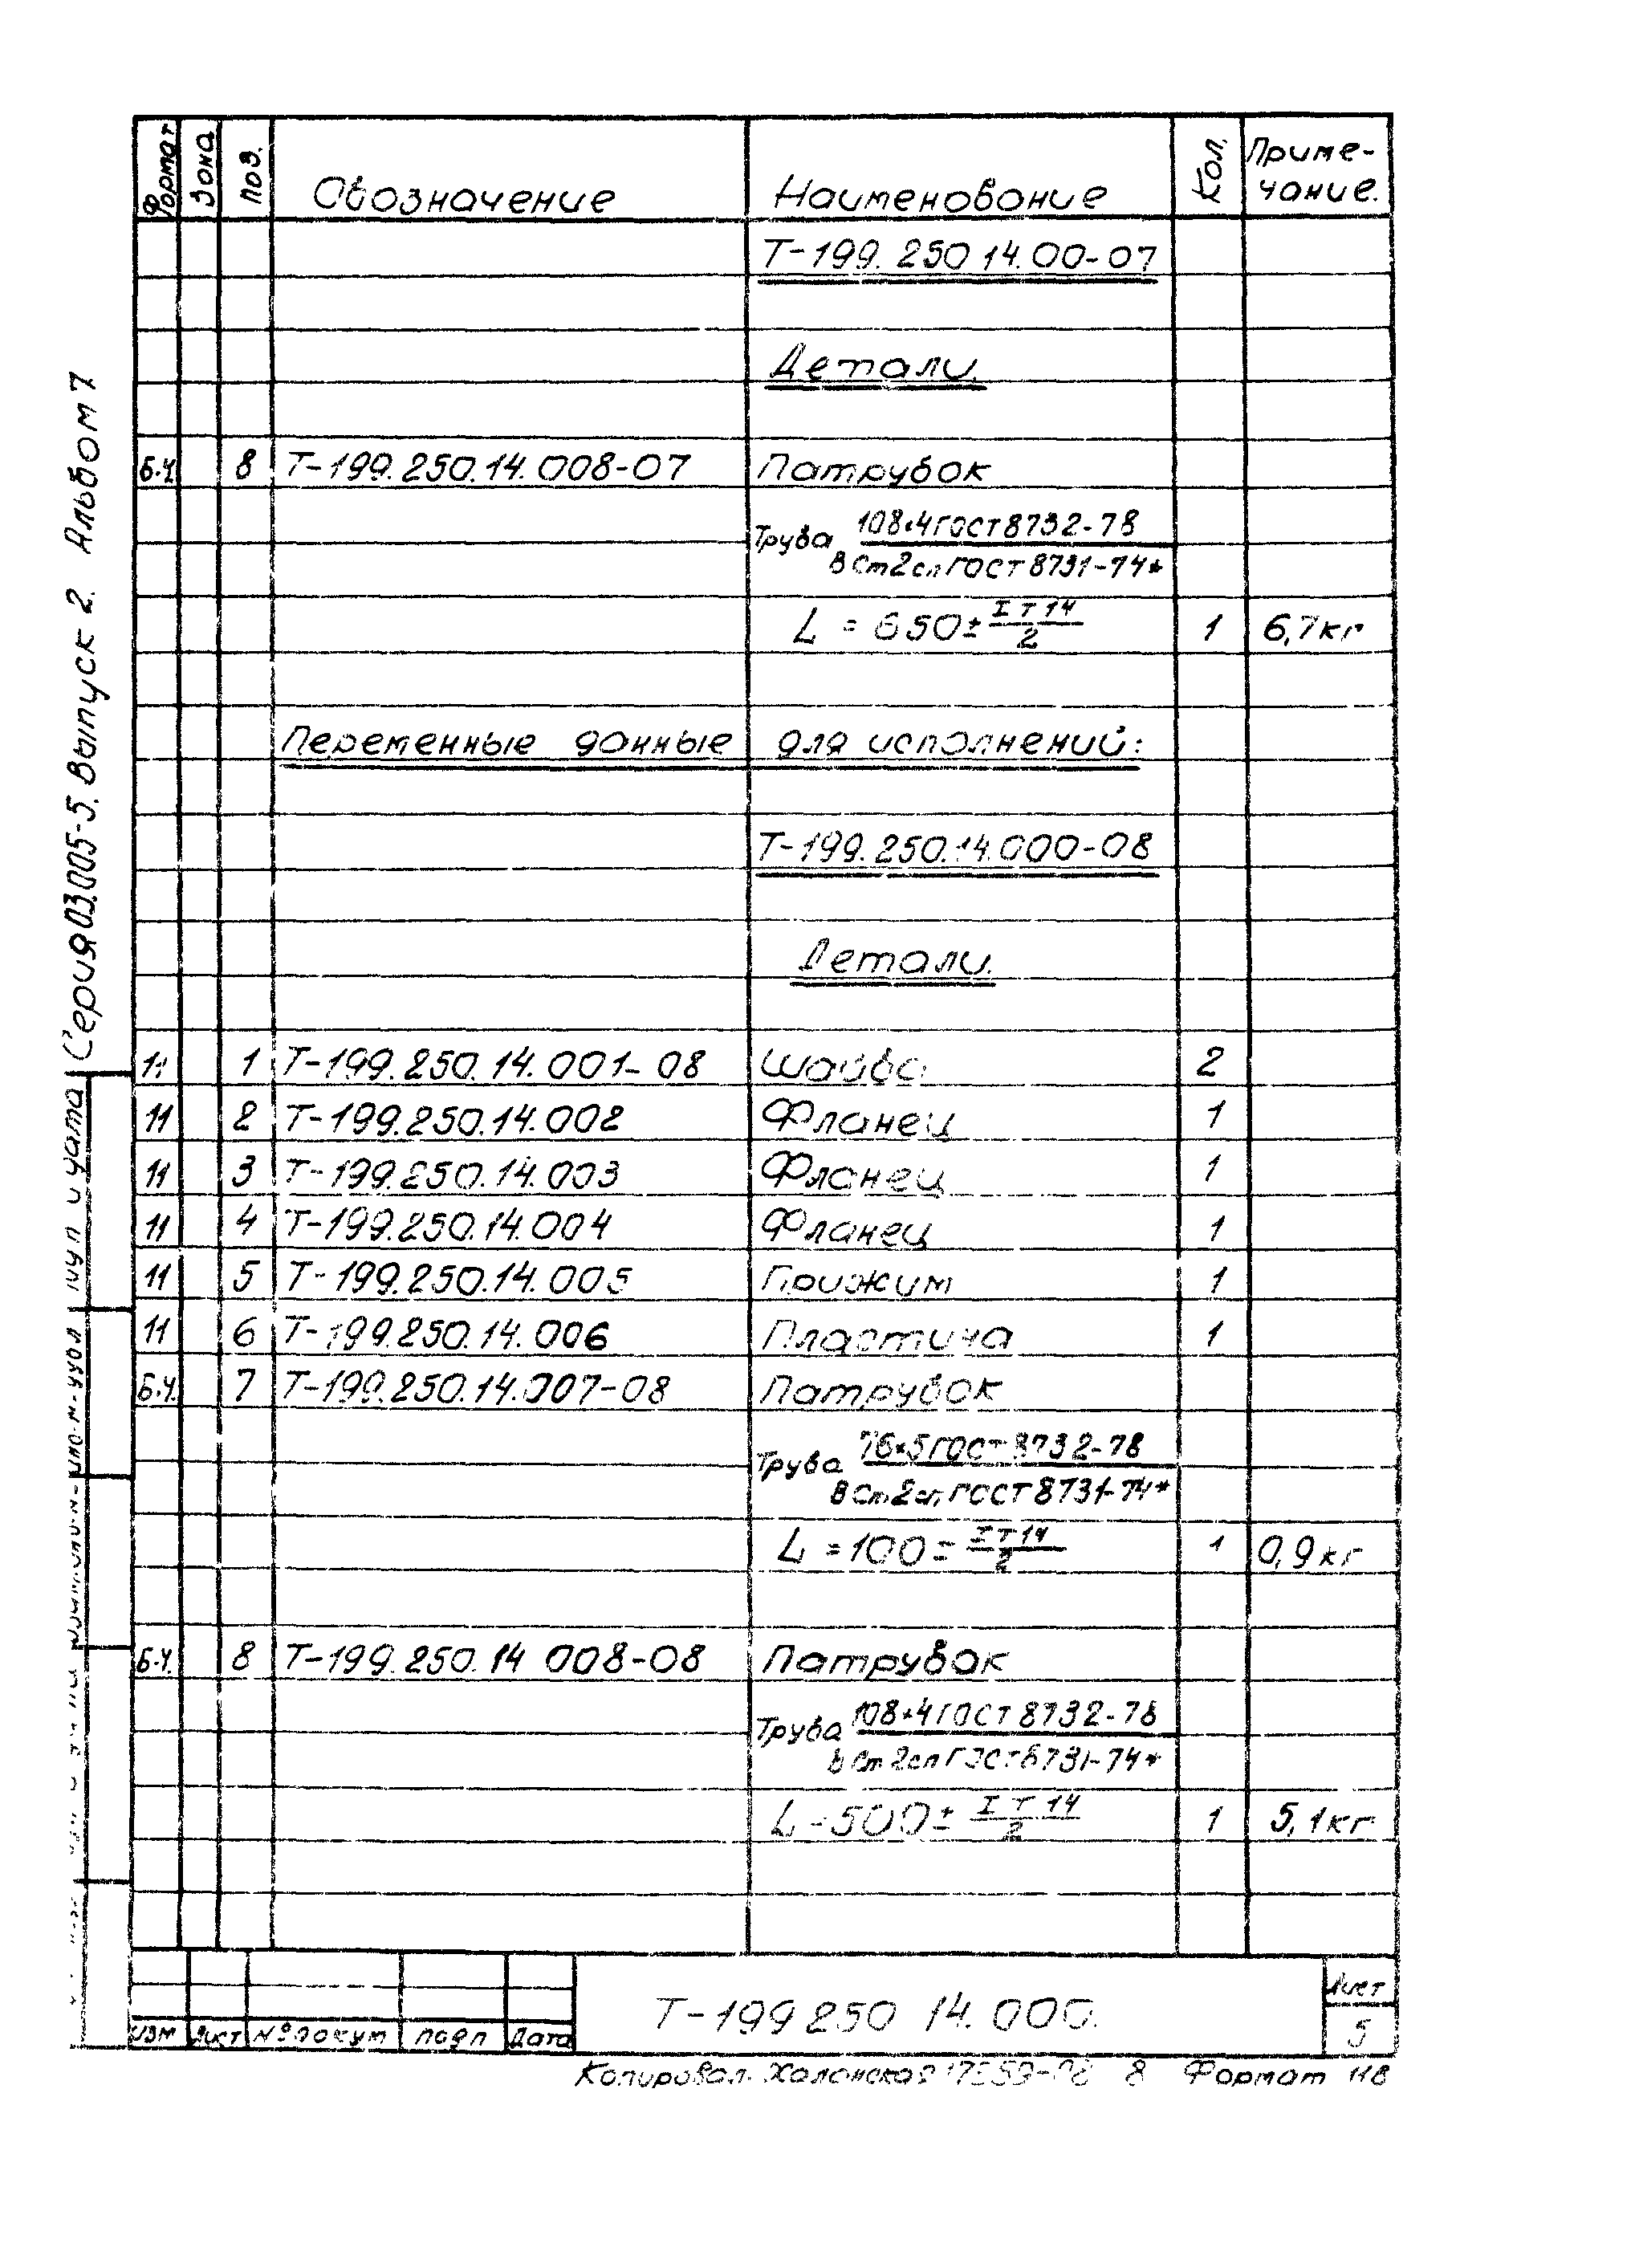 Формат Зона Поз. Обозначение Наименование Кол. Приме-
чание.
Т-199.250 14.00-07
Детали.
Б.Ч. 8 Т-199.250.14.008-07 Патрубок
Труба 108×4 ГОСТ 8732-78
В Ст2сп ГОСТ 8731-74*
L = 650± IT14/2 1 6,7кг
Переменные данные для исполнений:
Т-199.250.14.000-08
Детали.
11 1 Т-199.250.14.001-08 Шайба 2
11 2 Т-199.250.14.002 Фланец 1
11 3 Т-199.250.14.003 Фланец 1
11 4 Т-199.250.14.004 Фланец 1
11 5 Т-199.250.14.005 Прижим 1
11 6 Т-199.250.14.006 Пластина 1
Б.Ч. 7 Т-199.250.14.007-08 Патрубок
Труба 76×5 ГОСТ 8732-78
В Ст2сп ГОСТ 8731-74*
L = 100± IT14/2 1 0,9кг
Б.Ч. 8 Т-199.250.14 008-08 Патрубок
Труба 108×4 ГОСТ 8732-78
В Ст2сп ГОСТ 8731-74*
L = 500± IT14/2 1 5,1кг
Серия 03.005-5. Выпуск 2. Альбом 7
и дата
Изм Лист № докум подп Дата
Т-199 250 14.000.
Лист
5
Копировал. 8 Формат 11В